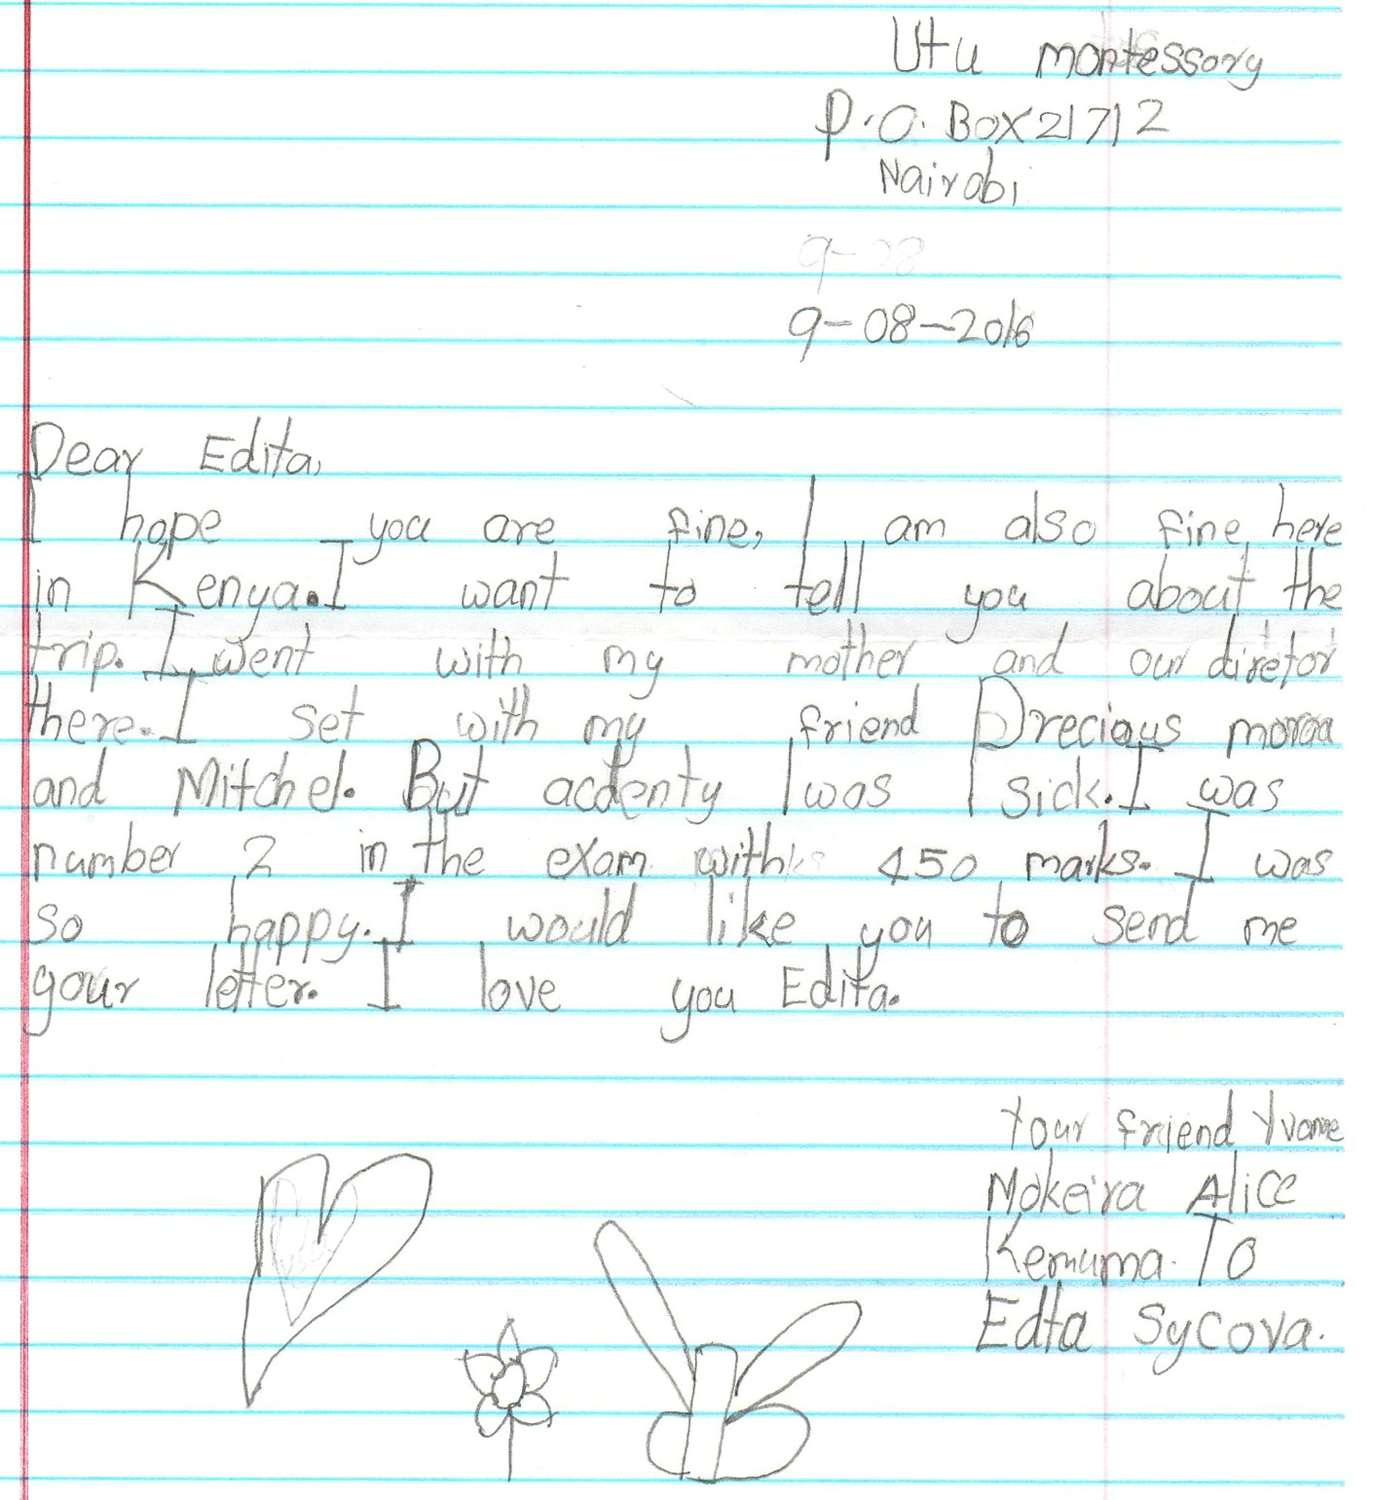 Utu montessory
P.O. Box 21712
Nairobi
9-08-2016
Dear Edita,
I hope you are fine, I am also fine here
in Kenya. I want to tell you about the
trip. I went with my mother and our diretor
there. I set with my friend Precious moraa
and Mitchel. But acdenty I was sick. I was
number 2 in the exam with 450 marks. I was
so happy. I would like you to send me
your letter. I love you Edita.
Your friend Yvonne
Mokeira Alice
Kemuma. To
Edta Sycova.